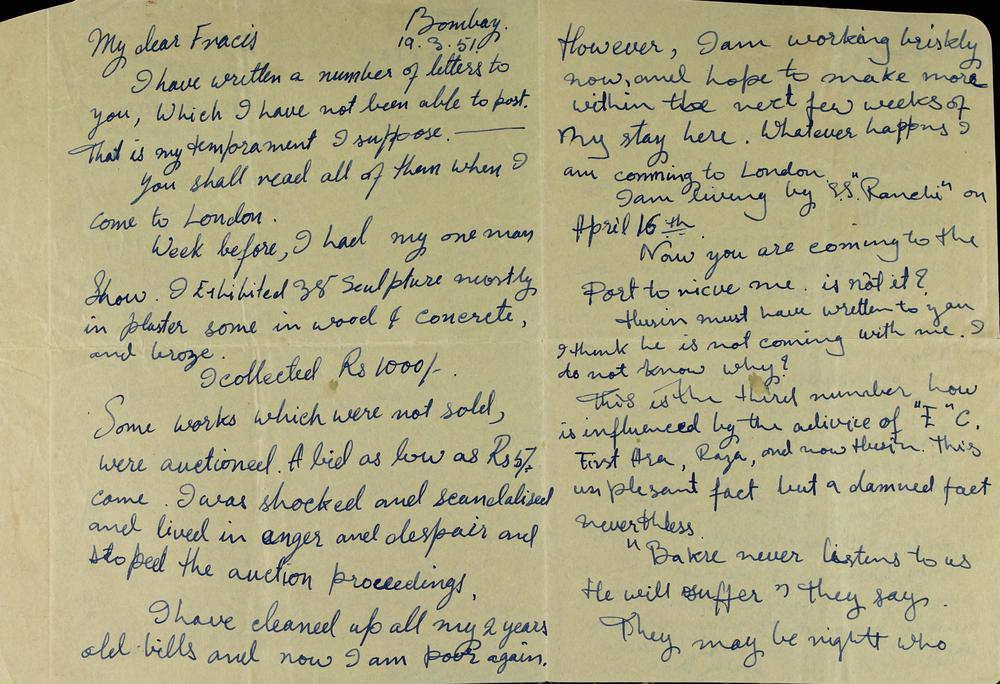 Bombay.
19.3.51.
My dear Fracis
I have written a number of letters to
you, Which I have not been able to post.
That is my temprament I suppose. —
You shall read all of them when I
come to London.
Week before, I had my one man
Show. I Exhibited 38 Sculpture mostly
in plaster some in wood & concrete,
and broze.
I collected Rs 1000/-.
Some works which were not sold,
were auctioned. A bid as low as Rs 5/-
came. I was shocked and scandalised
and lived in anger and despair and
stoped the auction proceedings.
I have cleaned up all my 2 years
old bills and now I am poor again.
However, I am working briskly
now, and hope to make more
within the next few weeks of
my stay here. Whatever happns I
am comming to London.
I am living by S.S. "Ranchi" on
April 16th.
Now you are coming to the
Port to ricive me. is not it?
Husin must have written to you
I think he is not coming with me. I
do not know why?
This is the third number how
is influenced by the adivice of "I" C.
First Ara, Raza, and now Husin. This
unplesant fact but a damned fact
neverthless.
"Bakre never listens to us
He will suffer" they says.
They may be right who